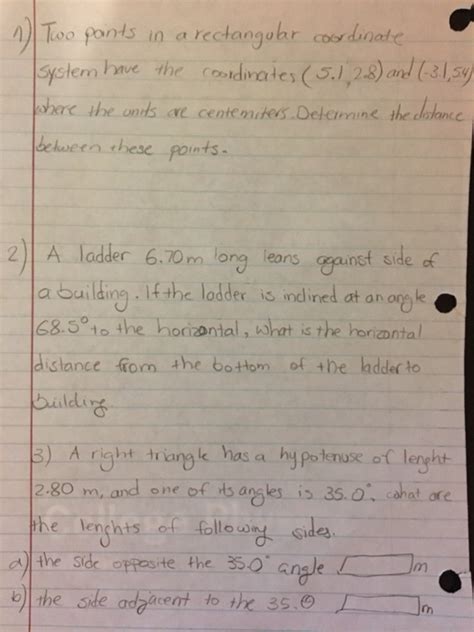 1) Two points in a rectangular coordinate
system have the coordinates (5.1, 2.8) and (-3.1, 5.4)
where the units are centemiters. Determine the distance
between these points.
2) A ladder 6.70m long leans against side of
a building. If the ladder is inclined at an angle
68.5° to the horizontal, what is the horizontal
distance from the bottom of the ladder to
building.
3) A right triangle has a hypotenuse of lenght
2.80 m, and one of its angles is 35.0°, what are
the lenghts of following sides.
a) the side opposite the 35.0° angle m
b) the side adjacent to the 35.0 m